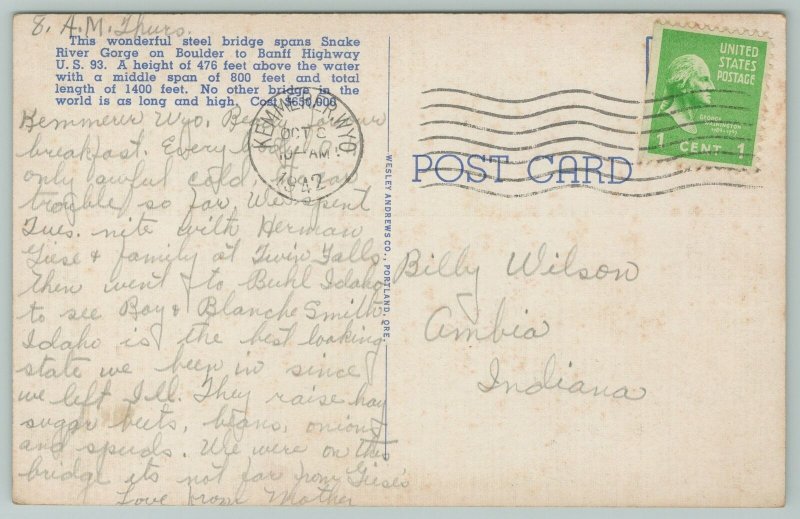 8. A.M. Thurs.
This wonderful steel bridge spans Snake
River Gorge on Boulder to Banff Highway
U. S. 93. A height of 476 feet above the water
with a middle span of 800 feet and total
length of 1400 feet. No other bridge in the
world is as long and high. Cost $650,000
Kemmerer Wyo. our
breakfast. Every
only awful cold, no car
trouble so far. We spent
Tues. nite with Herman
Giese & family at Twin Falls
then went to Buhl Idaho
to see Roy & Blanche Smith
Idaho is the best looking
state we been in since
we left Ill. They raise hay
sugar beets, beans, onions
and spuds. We were on this
bridge its not far from Giese's
Love from Mother
KEMMERER, WYO.
OCT 8
10 AM
1942
WESLEY ANDREWS CO., PORTLAND, ORE.
UNITED
STATES
POSTAGE
GEORGE
WASHINGTON
1789-1797
1 CENT 1
POST CARD
Billy Wilson
Ambia
Indiana